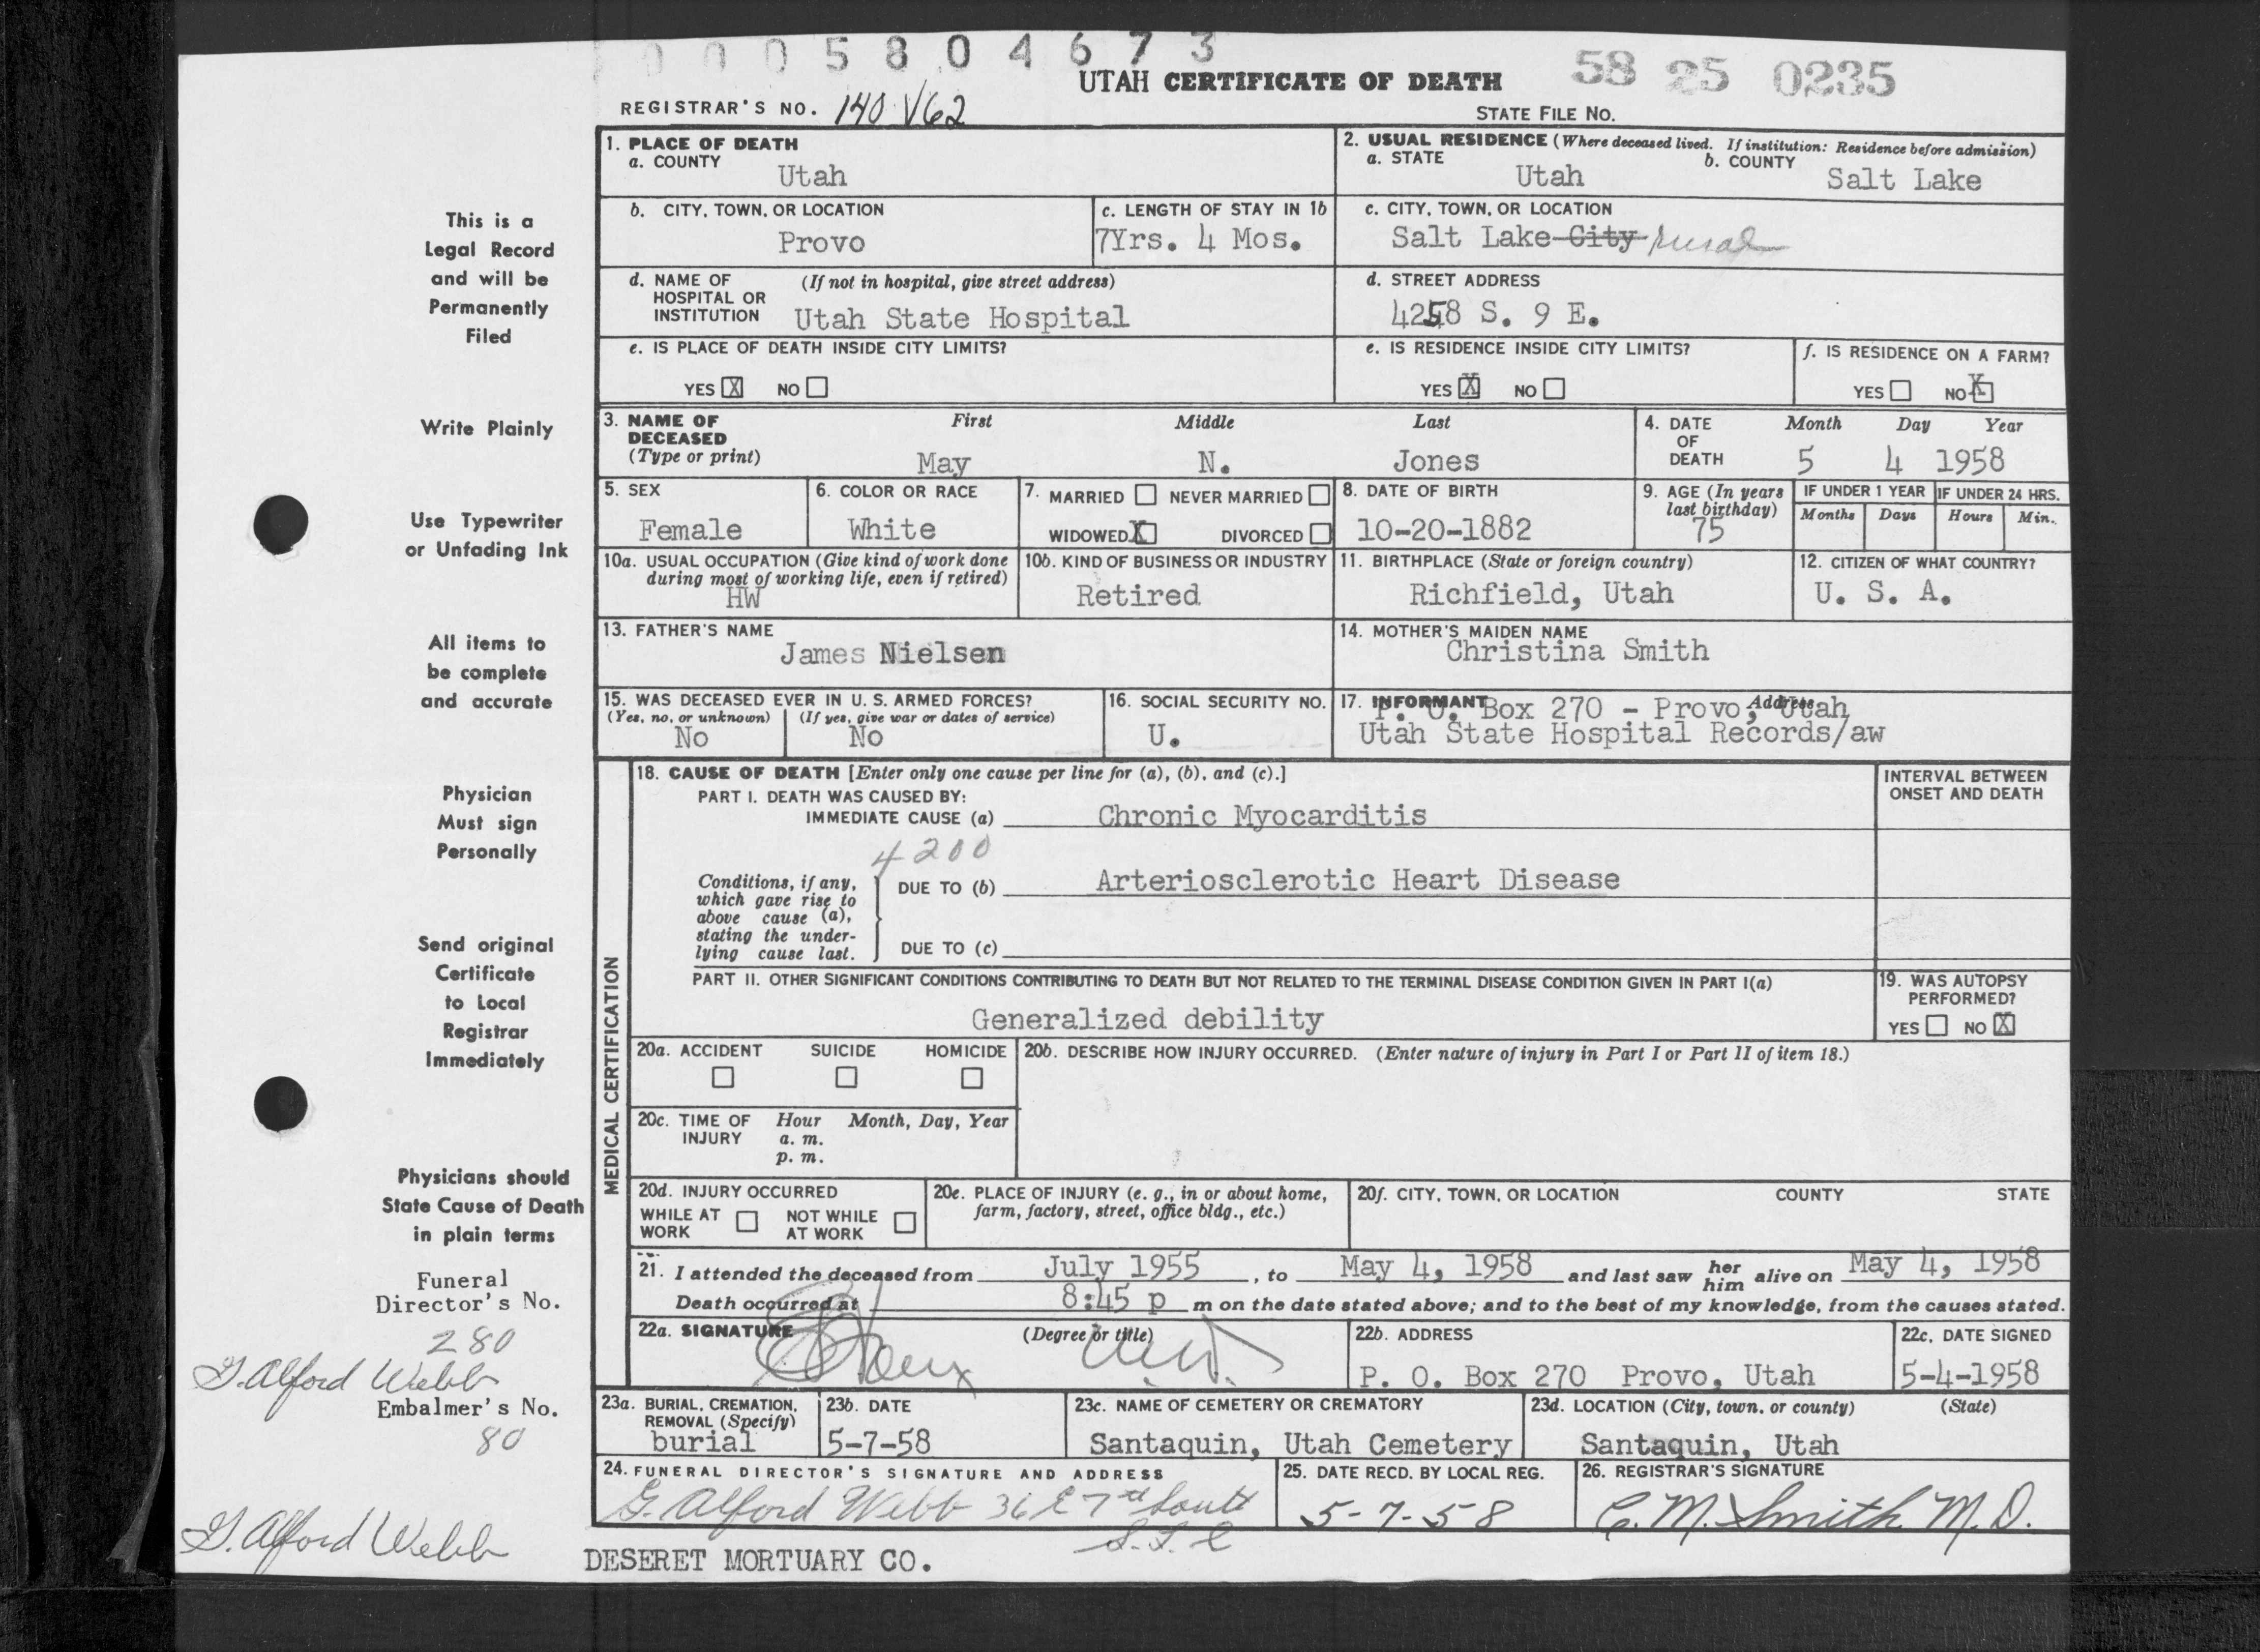 0005804673
58 25 0235
UTAH CERTIFICATE OF DEATH
REGISTRAR'S NO. 140 V62
STATE FILE NO.
This is a
Legal Record
and will be
Permanently
Filed
Write Plainly
Use Typewriter
or Unfading Ink
All items to
be complete
and accurate
Physician
Must sign
Personally
Send original
Certificate
to Local
Registrar
Immediately
Physicians should
State Cause of Death
in plain terms
Funeral
Director's No.
280
G. Alford Webb
Embalmer's No.
80
G. Alford Webb
1. PLACE OF DEATH
a. COUNTY
Utah
2. USUAL RESIDENCE (Where deceased lived. If institution: Residence before admission)
a. STATE
Utah
b. COUNTY
Salt Lake
b. CITY, TOWN, OR LOCATION
Provo
c. LENGTH OF STAY IN 1b
7Yrs. 4 Mos.
c. CITY, TOWN, OR LOCATION
Salt Lake City rural
d. NAME OF (If not in hospital, give street address)
HOSPITAL OR
INSTITUTION Utah State Hospital
d. STREET ADDRESS
4258 S. 9 E.
e. IS PLACE OF DEATH INSIDE CITY LIMITS?
YES X NO
e. IS RESIDENCE INSIDE CITY LIMITS?
YES X NO
f. IS RESIDENCE ON A FARM?
YES NO X
3. NAME OF
DECEASED
(Type or print)
First Middle Last
May N. Jones
4. DATE
OF
DEATH
Month Day Year
5 4 1958
5. SEX
Female
6. COLOR OR RACE
White
7. MARRIED NEVER MARRIED
WIDOWED X DIVORCED
8. DATE OF BIRTH
10-20-1882
9. AGE (In years
last birthday)
75
IF UNDER 1 YEAR
Months Days
IF UNDER 24 HRS.
Hours Min.
10a. USUAL OCCUPATION (Give kind of work done
during most of working life, even if retired)
HW
10b. KIND OF BUSINESS OR INDUSTRY
Retired
11. BIRTHPLACE (State or foreign country)
Richfield, Utah
12. CITIZEN OF WHAT COUNTRY?
U. S. A.
13. FATHER'S NAME
James Nielsen
14. MOTHER'S MAIDEN NAME
Christina Smith
15. WAS DECEASED EVER IN U. S. ARMED FORCES?
(Yes, no, or unknown) (If yes, give war or dates of service)
No No
16. SOCIAL SECURITY NO.
U.
17. INFORMANT Address
P. O. Box 270 - Provo, Utah
Utah State Hospital Records/aw
MEDICAL CERTIFICATION
18. CAUSE OF DEATH [Enter only one cause per line for (a), (b), and (c).]
INTERVAL BETWEEN
ONSET AND DEATH
PART I. DEATH WAS CAUSED BY:
IMMEDIATE CAUSE (a) Chronic Myocarditis
4200
Conditions, if any,
which gave rise to
above cause (a),
stating the under-
lying cause last.
DUE TO (b) Arteriosclerotic Heart Disease
DUE TO (c)
PART II. OTHER SIGNIFICANT CONDITIONS CONTRIBUTING TO DEATH BUT NOT RELATED TO THE TERMINAL DISEASE CONDITION GIVEN IN PART I(a)
Generalized debility
19. WAS AUTOPSY
PERFORMED?
YES NO X
20a. ACCIDENT SUICIDE HOMICIDE
20b. DESCRIBE HOW INJURY OCCURRED. (Enter nature of injury in Part I or Part II of item 18.)
20c. TIME OF Hour Month, Day, Year
INJURY a. m.
p. m.
20d. INJURY OCCURRED
WHILE AT NOT WHILE
WORK AT WORK
20e. PLACE OF INJURY (e. g., in or about home,
farm, factory, street, office bldg., etc.)
20f. CITY, TOWN, OR LOCATION COUNTY STATE
21. I attended the deceased from July 1955, to May 4, 1958 and last saw her him alive on May 4, 1958
Death occurred at 8:45 p m on the date stated above; and to the best of my knowledge, from the causes stated.
22a. SIGNATURE (Degree or title)
M.D.
22b. ADDRESS
P. O. Box 270 Provo, Utah
22c. DATE SIGNED
5-4-1958
23a. BURIAL, CREMATION,
REMOVAL (Specify)
burial
23b. DATE
5-7-58
23c. NAME OF CEMETERY OR CREMATORY
Santaquin, Utah Cemetery
23d. LOCATION (City, town, or county) (State)
Santaquin, Utah
24. FUNERAL DIRECTOR'S SIGNATURE AND ADDRESS
G. Alford Webb 36 E 7th South
S.L.C
25. DATE RECD. BY LOCAL REG.
5-7-58
26. REGISTRAR'S SIGNATURE
C. M. Smith M. D.
DESERET MORTUARY CO.